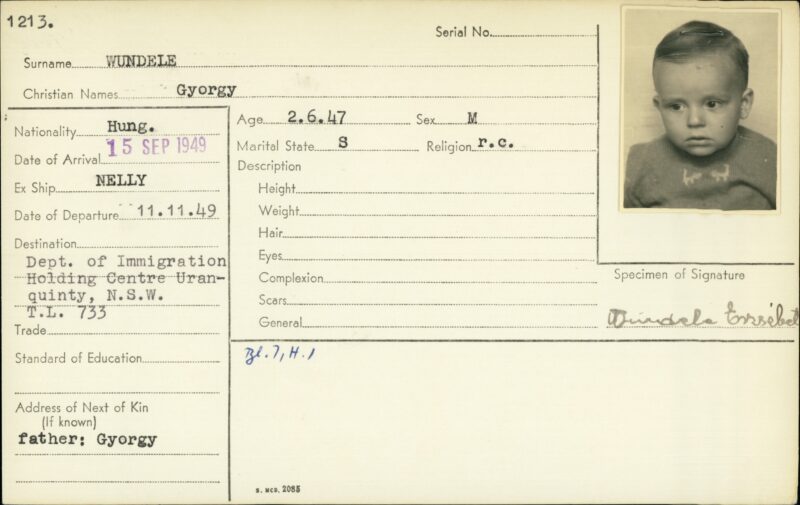 1213.
Serial No.
Surname WUNDELE
Christian Names Gyorgy
Nationality Hung.
Date of Arrival 15 SEP 1949
Ex Ship NELLY
Date of Departure 11.11.49
Destination
Dept. of Immigration
Holding Centre Uran-
quinty, N.S.W.
T.L. 733
Trade
Standard of Education
Address of Next of Kin
(If known)
father: Gyorgy
Age 2.6.47 Sex M
Marital State S Religion r.c.
Description
Height
Weight
Hair
Eyes
Complexion
Scars
General
Bl.7, H.1
S. MCD. 2085
Specimen of Signature
Wundele Erzsébet